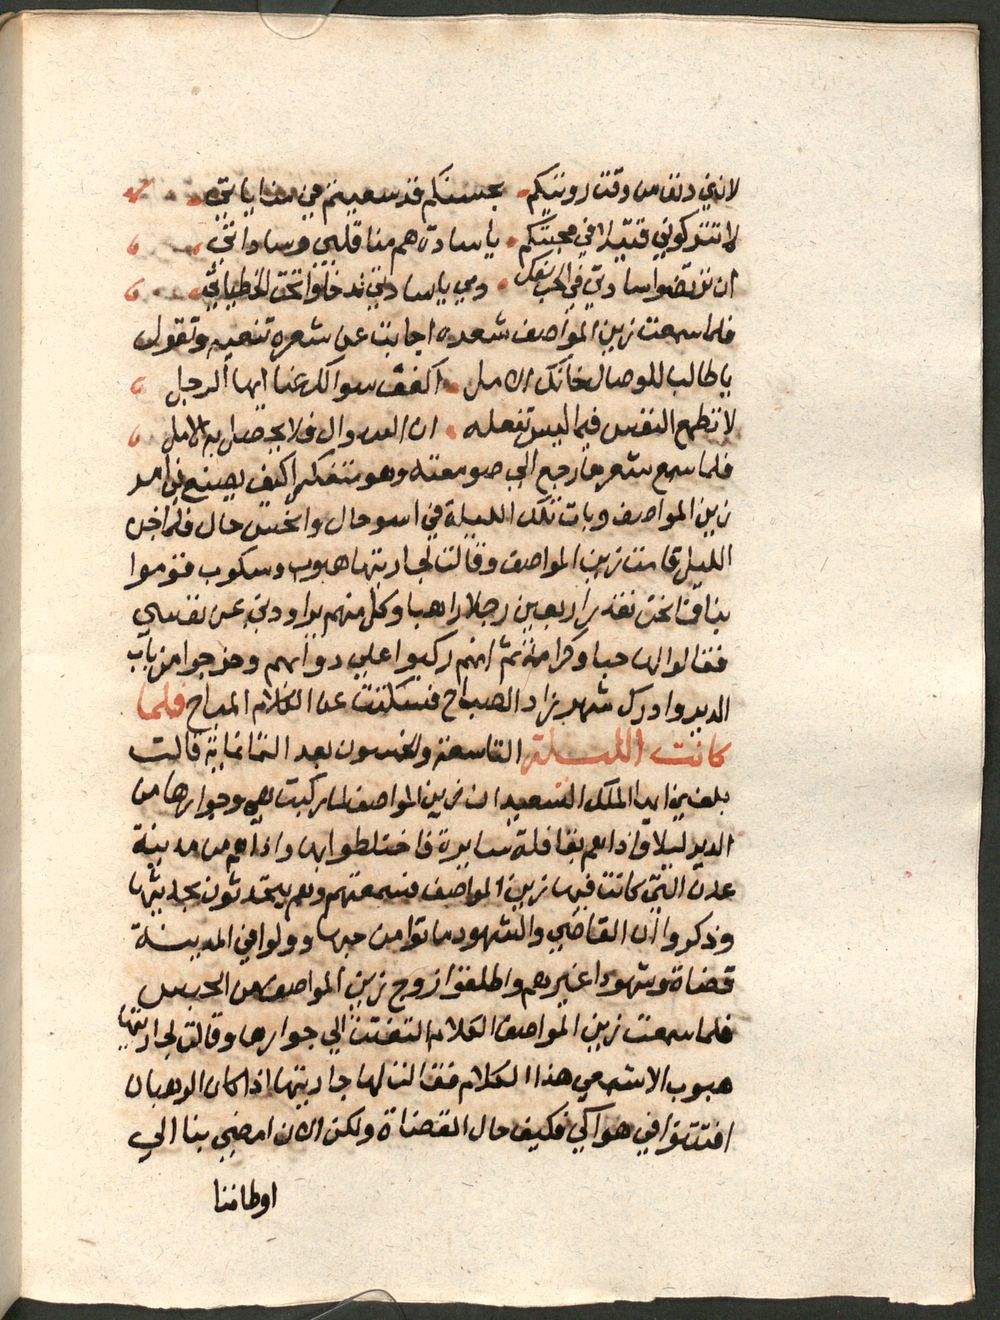 لانني دنف من وقت رويتكم بحسنكم قد سعيتم في
لا تتركوني قتيلا في محبتكم يا سادة هم منا قلبي وساداتي
ان ترتضوا سادتي في الحب بقتلكم ومي يا سادتي تدخلوا تحت الخطياتي
فلما سمعت زين المواصف شعره اجابت عن شعره تنعيه وتقول
يا طالب للوصال خانك الامل اكفف سوالك عنا ايها الرجل
لا تطمع النفس فيما ليس تفعله ان السوال فلا يحصل به الامل
فلما سمع شعرها رجع الي صومعته وهو متفكرا كيف يصنع في امر
زين المواصف وبات تلك الليلة في اسو حال وانحس حال فلما جن
الليل قامت زين المواصف وقالت لجاريتها هبوب وسكوب قوموا
بنا فنا نحن نقدر اربعين رجلا راهبا وكل منهم يراودني عن نفسي
فقالوا لها حبا وكرامة ثم انهم ركبوا علي دوابهم وخرجوا من باب
الدير وادرك شهرزاد الصباح فسكتت عن الكلام المباح فلما
كانت الليلة التاسعة والخمسون بعد الثمانماية قالت
بلغني ايها الملك السعيد ان زين المواصف لما ركبت هي وجوارها من
الدير ليلا واذا هم بقافلة سايرة فاختلطوا بها واذا هم من مدينة
عدن التي كانت فيها زين المواصف فسمعتهم وهم يتحدثون بحديثها
وذكروا ان القاضي والشهود ماتوا من حبها وولوا في المدينة
قضاة وشهودا غيرهم واطلقوا زوج زين المواصف من الحبس
فلما سمعت زين المواصف الكلام التفتت الي جوارها وقالت لجاريتها
هبوب الا تسمعي هذا الكلام فقالت لها جاريتها اذا كان الرهبان
افتتنوا في هواكي فكيف حال القضاة ولكن الان امضي بنا الي
اوطاننا